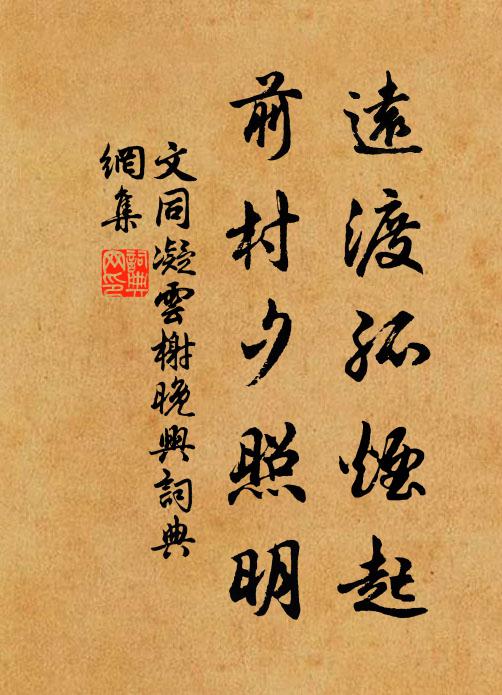 遠渡孤煙起
前村夕照明
文同凝雲榭晚興詞典
網集
詞典
網印